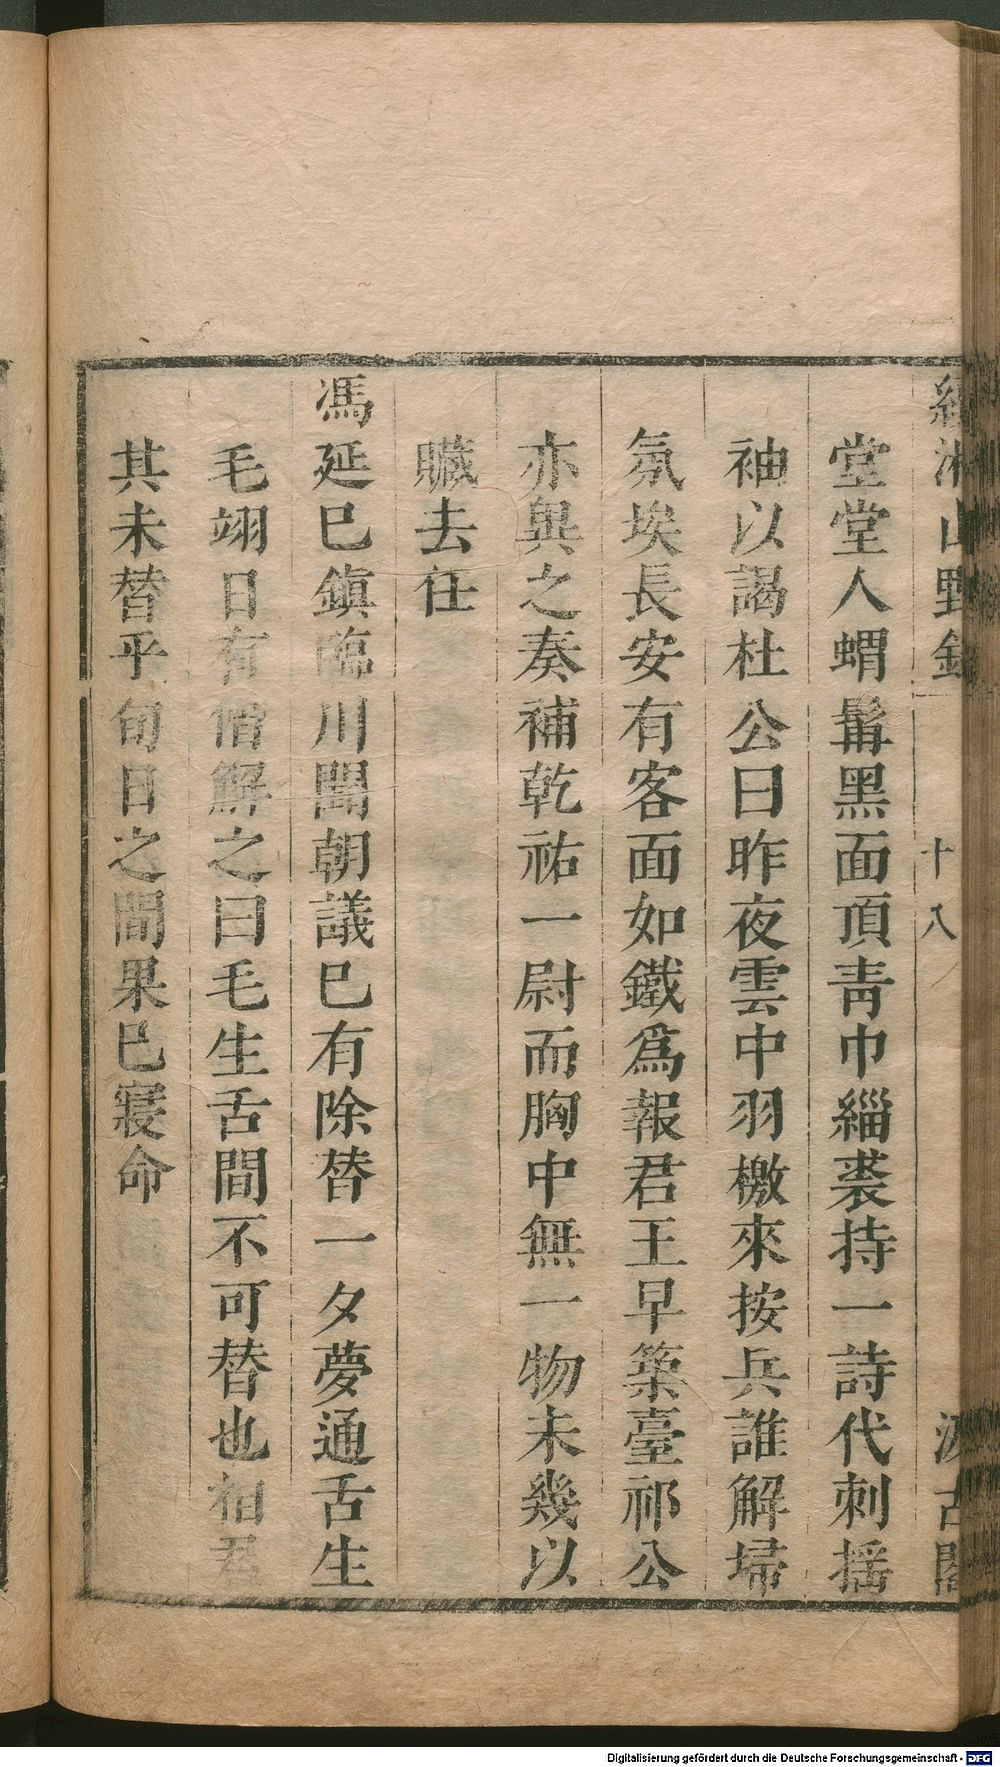 續湘山野錄 十八 汲古閣
堂堂人蝟髯黑面頂靑巾緇裘持一詩代刺搖
袖以謁杜公曰昨夜雲中羽檄來按兵誰解掃
氛埃長安有客面如鐵爲報君王早築臺祁公
亦異之奏補乾祐一尉而胸中無一物未幾以
贓去任
馮延巳鎮臨川聞朝議已有除替一夕夢通舌生
毛翊日有僧解之曰毛生舌間不可替也相君
其未替乎旬日之間果已寢命
Digitalisierung gefördert durch die Deutsche Forschungsgemeinschaft - DFG